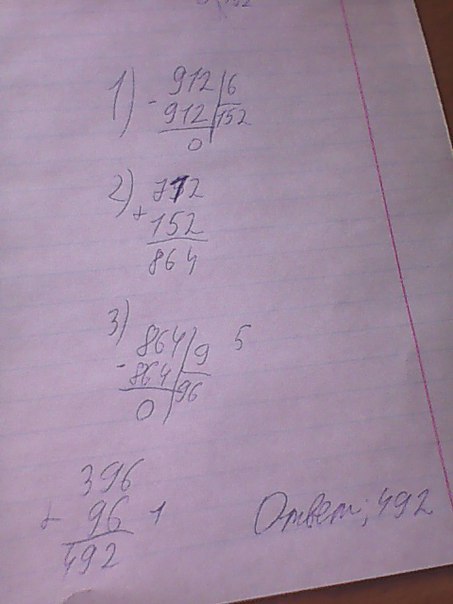 1) - 912 | 6
912 | 152
0
2) 712
+ 152
864
3) 864 | 9 5
- 864 | 96
0
396
+ 96 1
492
Ответ; 492